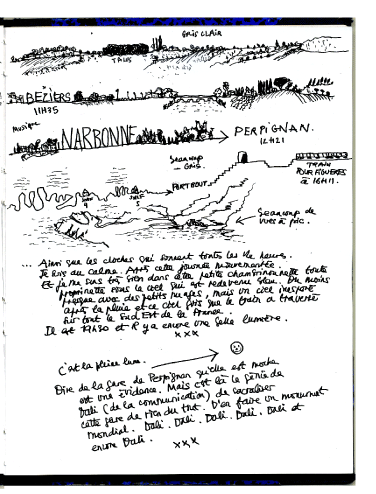 GRIS CLAIR
TALUS
BÉZIERS
11H35
Musique
NARBONNE
PERPIGNAN.
12H21
Beaucoup
- Gris.
TRAIN
POUR FIGUERES
à 16H11.
PORT BOU
Beaucoup de
vues à pic.
... Ainsi que les cloches qui sonnent toutes les 1/2 heures.
Je suis au calme. Après cette journée mouvementée.
Et je me sens très bien dans cette petite chambrounette toute
proprinette sous le ciel qui est redevenu bleu. Du moins
presque avec des petits nuages, mais un ciel inespéré
après la pluie et ce ciel gris que le train a traversé
sur tout le Sud Est de la France.
Il est 19H30 et il y a encore une belle lumière.
xxx
C'est la pleine lune.
Dire de la gare de Perpignan qu'elle est moche
est une évidence. Mais c'est là le génie de
Dali (de la communication) de sacraliser
cette gare de rien du tout. D'en faire un monument
mondial. Dali. Dali. Dali. Dali. Dali et
encore Dali.
xxx